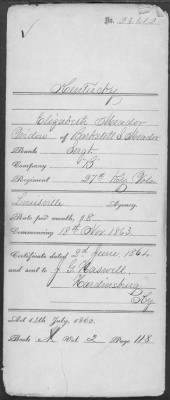 No. 
Kentucky
Elizabeth Meador
Widow of S Meador
Rank Sergt
Company "B"
Regiment 27th Ky Vols
Louisville Agency.
Rate per month, $8
Commencing 18th Nov. 1863.
Certificate dated 2d June, 1864
and sent to J G Haswell
Hardinsburg
Ky
Act 14th July, 1862.
Book Vol. 2 Page 118